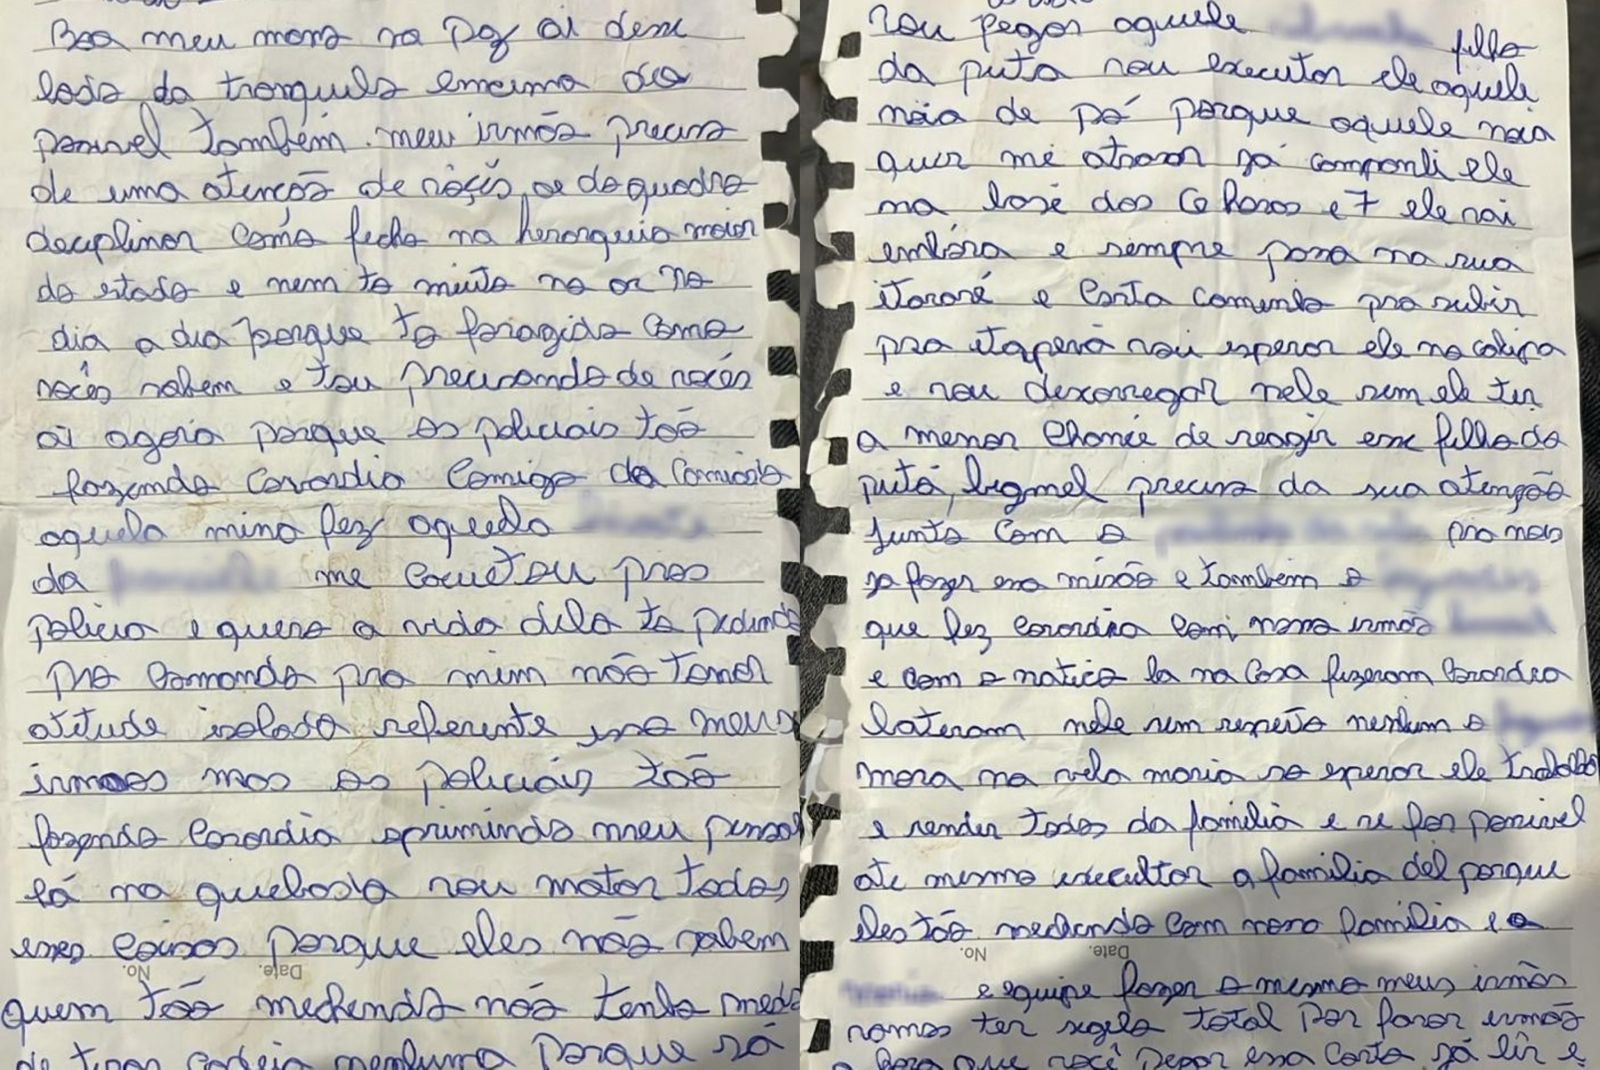 Boa meu mano na Paz ai desse
lado da tranquilo encima do
possivel também. meu irmão precisa
de uma atenção de vocês, ae da quadro
diciplinar como fecho na herarquia maior
do estado e nem to muito no ar no
dia a dia porque to foragido como
vocês sabem e tou precisando de vocês
ai agora porque os policiais tão
fazendo covardia comigo da comissão
aquela mina fez aquela
da me caguetou pros
policia e quero a vida dela to pedindo
pro comando pra mim não tomar
atitude isolada referente isso meus
irmãos mas os policiais tão
fazendo covardia oprimindo meu pessoal
lá na quebrada vou matar todos
esses coisas porque eles não sabem
No. Date.
quem tão mechendo não tenho medo
de tirar cadeia nenhuma porque só
vou pegar aquele filho
da puta vou executar ele aquele
nóia de pó porque aquele noia
quer me atrasar já campanei ele
na base dos 6 horas e 7 ele vai
embóra e sempre passa na rua
itararé e corta caminho pra subir
pra itapeva vou esperar ele na
e vou dexarregar nele sem ele ter
a menor chance de reagir esse filho da
puta, precisa da sua atenção
junto com o pra nois
ja fazer essa misão e também o
que fez covardia com nosso irmão
e com o la na casa fizeram covardia
bateram nele sem respeito nenhum o
mora na vila maria so esperar ele trabalho
e render todos da familia e se for possivel
ate mesmo executar a familia del porque
eles tão mechendo com nossa familia e a
No. Date.
e equipe fazer o mesmo meus irmãos
vamos ter sigilo total por favor irmão
a hora que você pegar essa carta já lir e